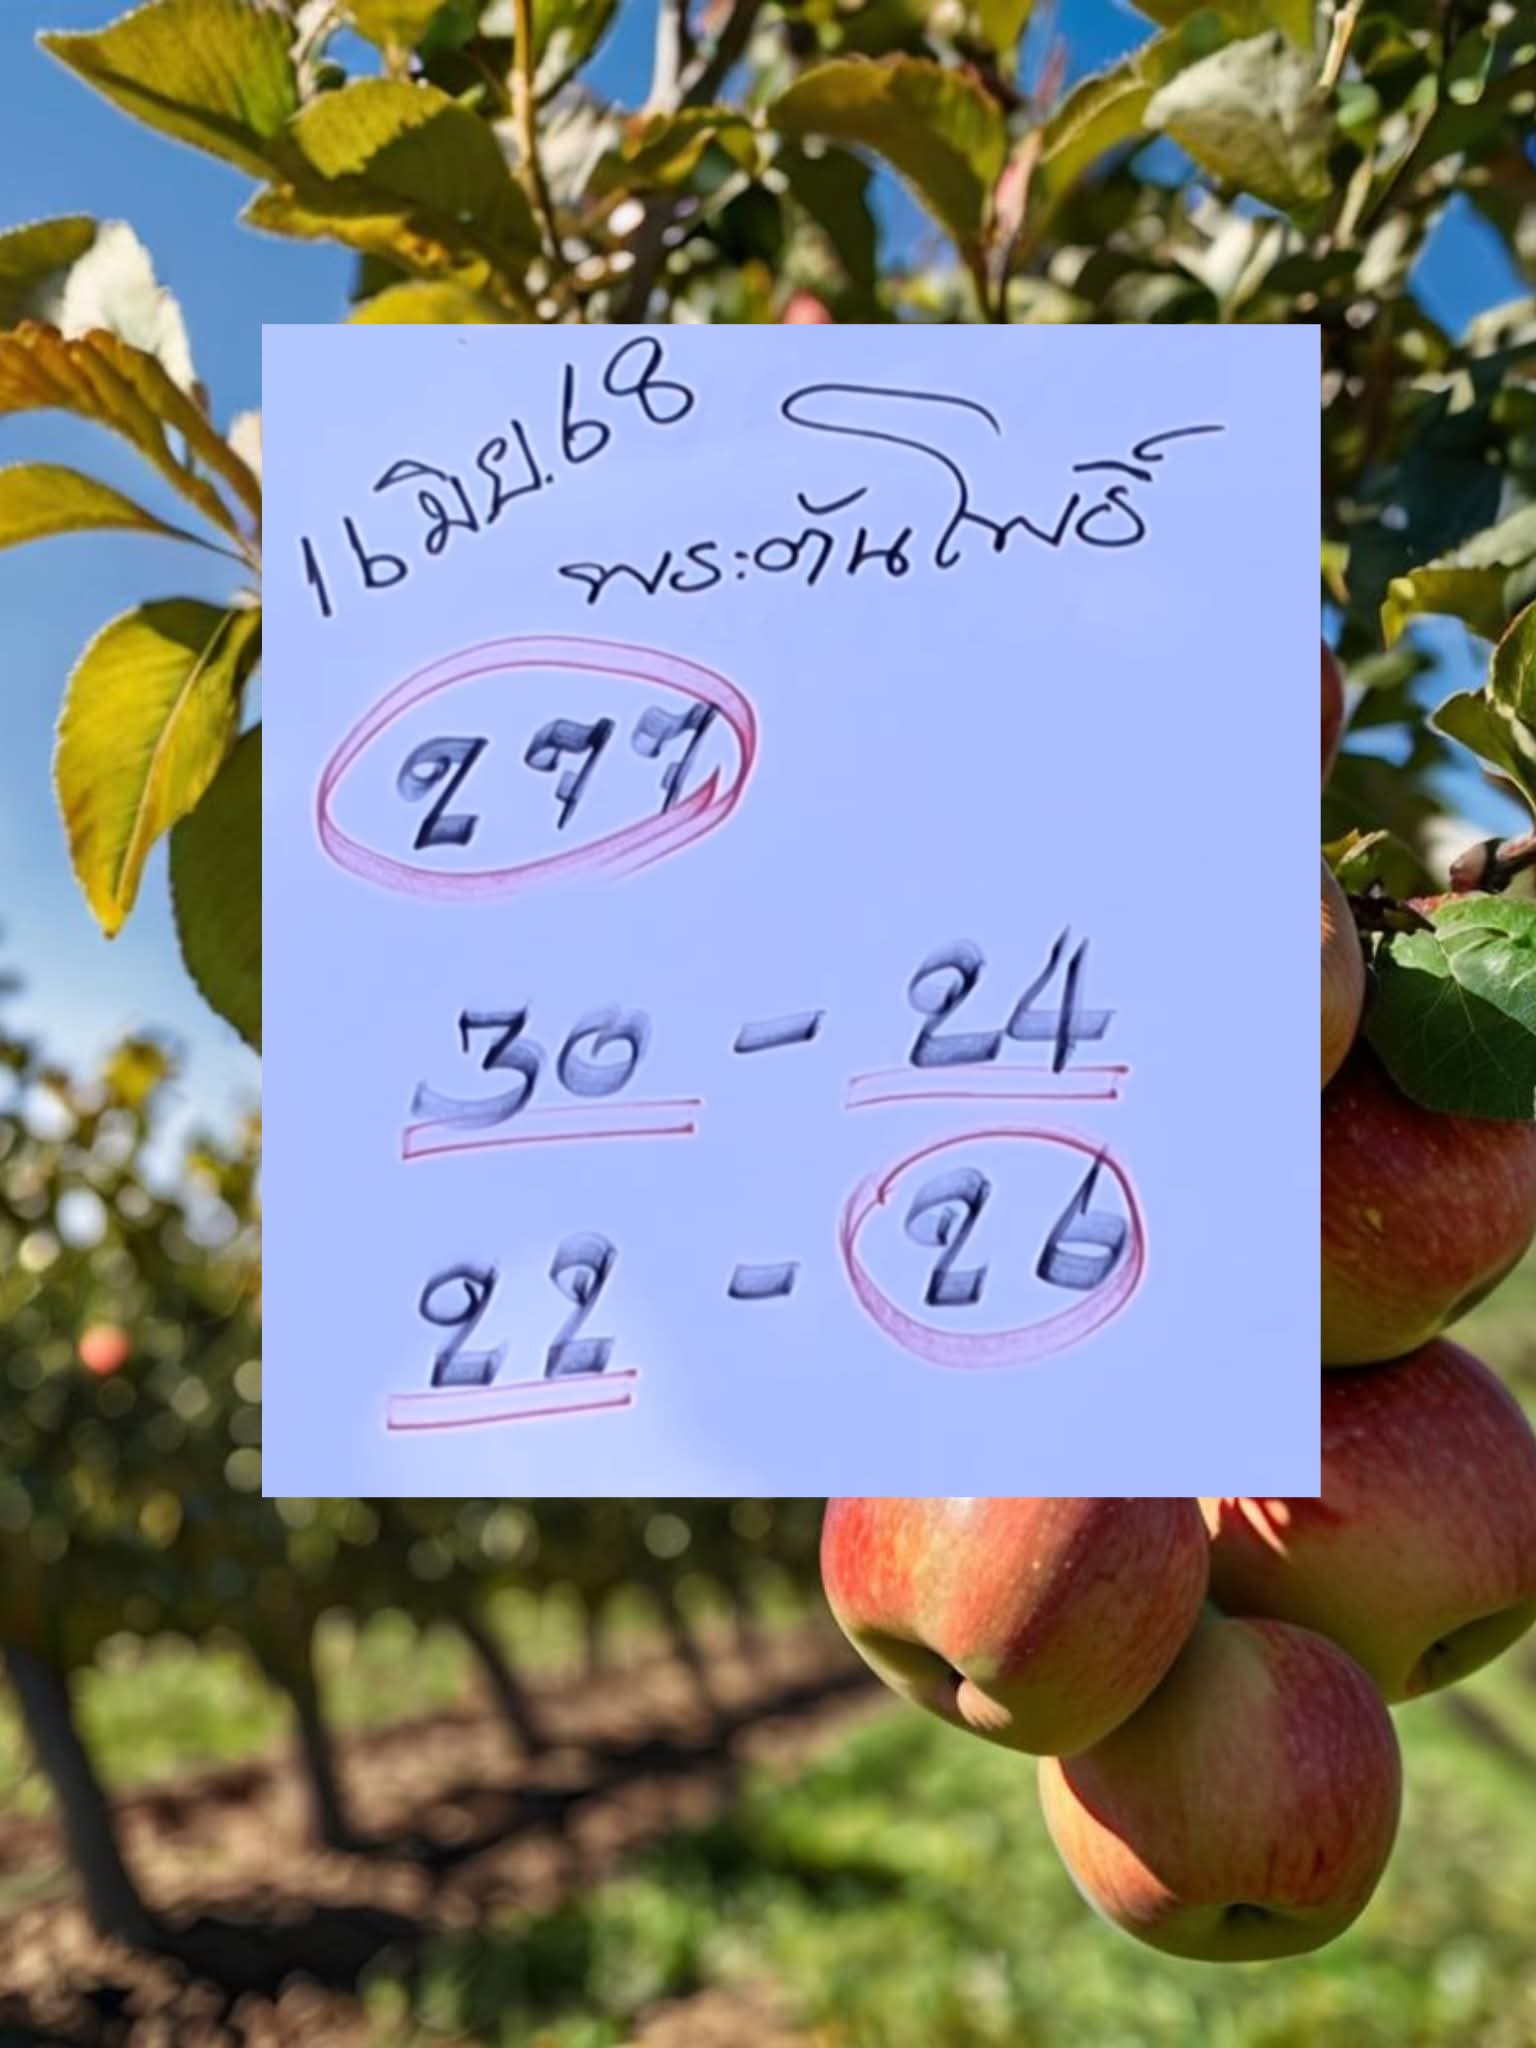 16 มิย.68
พระตันโพธิ์
277
30 - 24
22 - 26